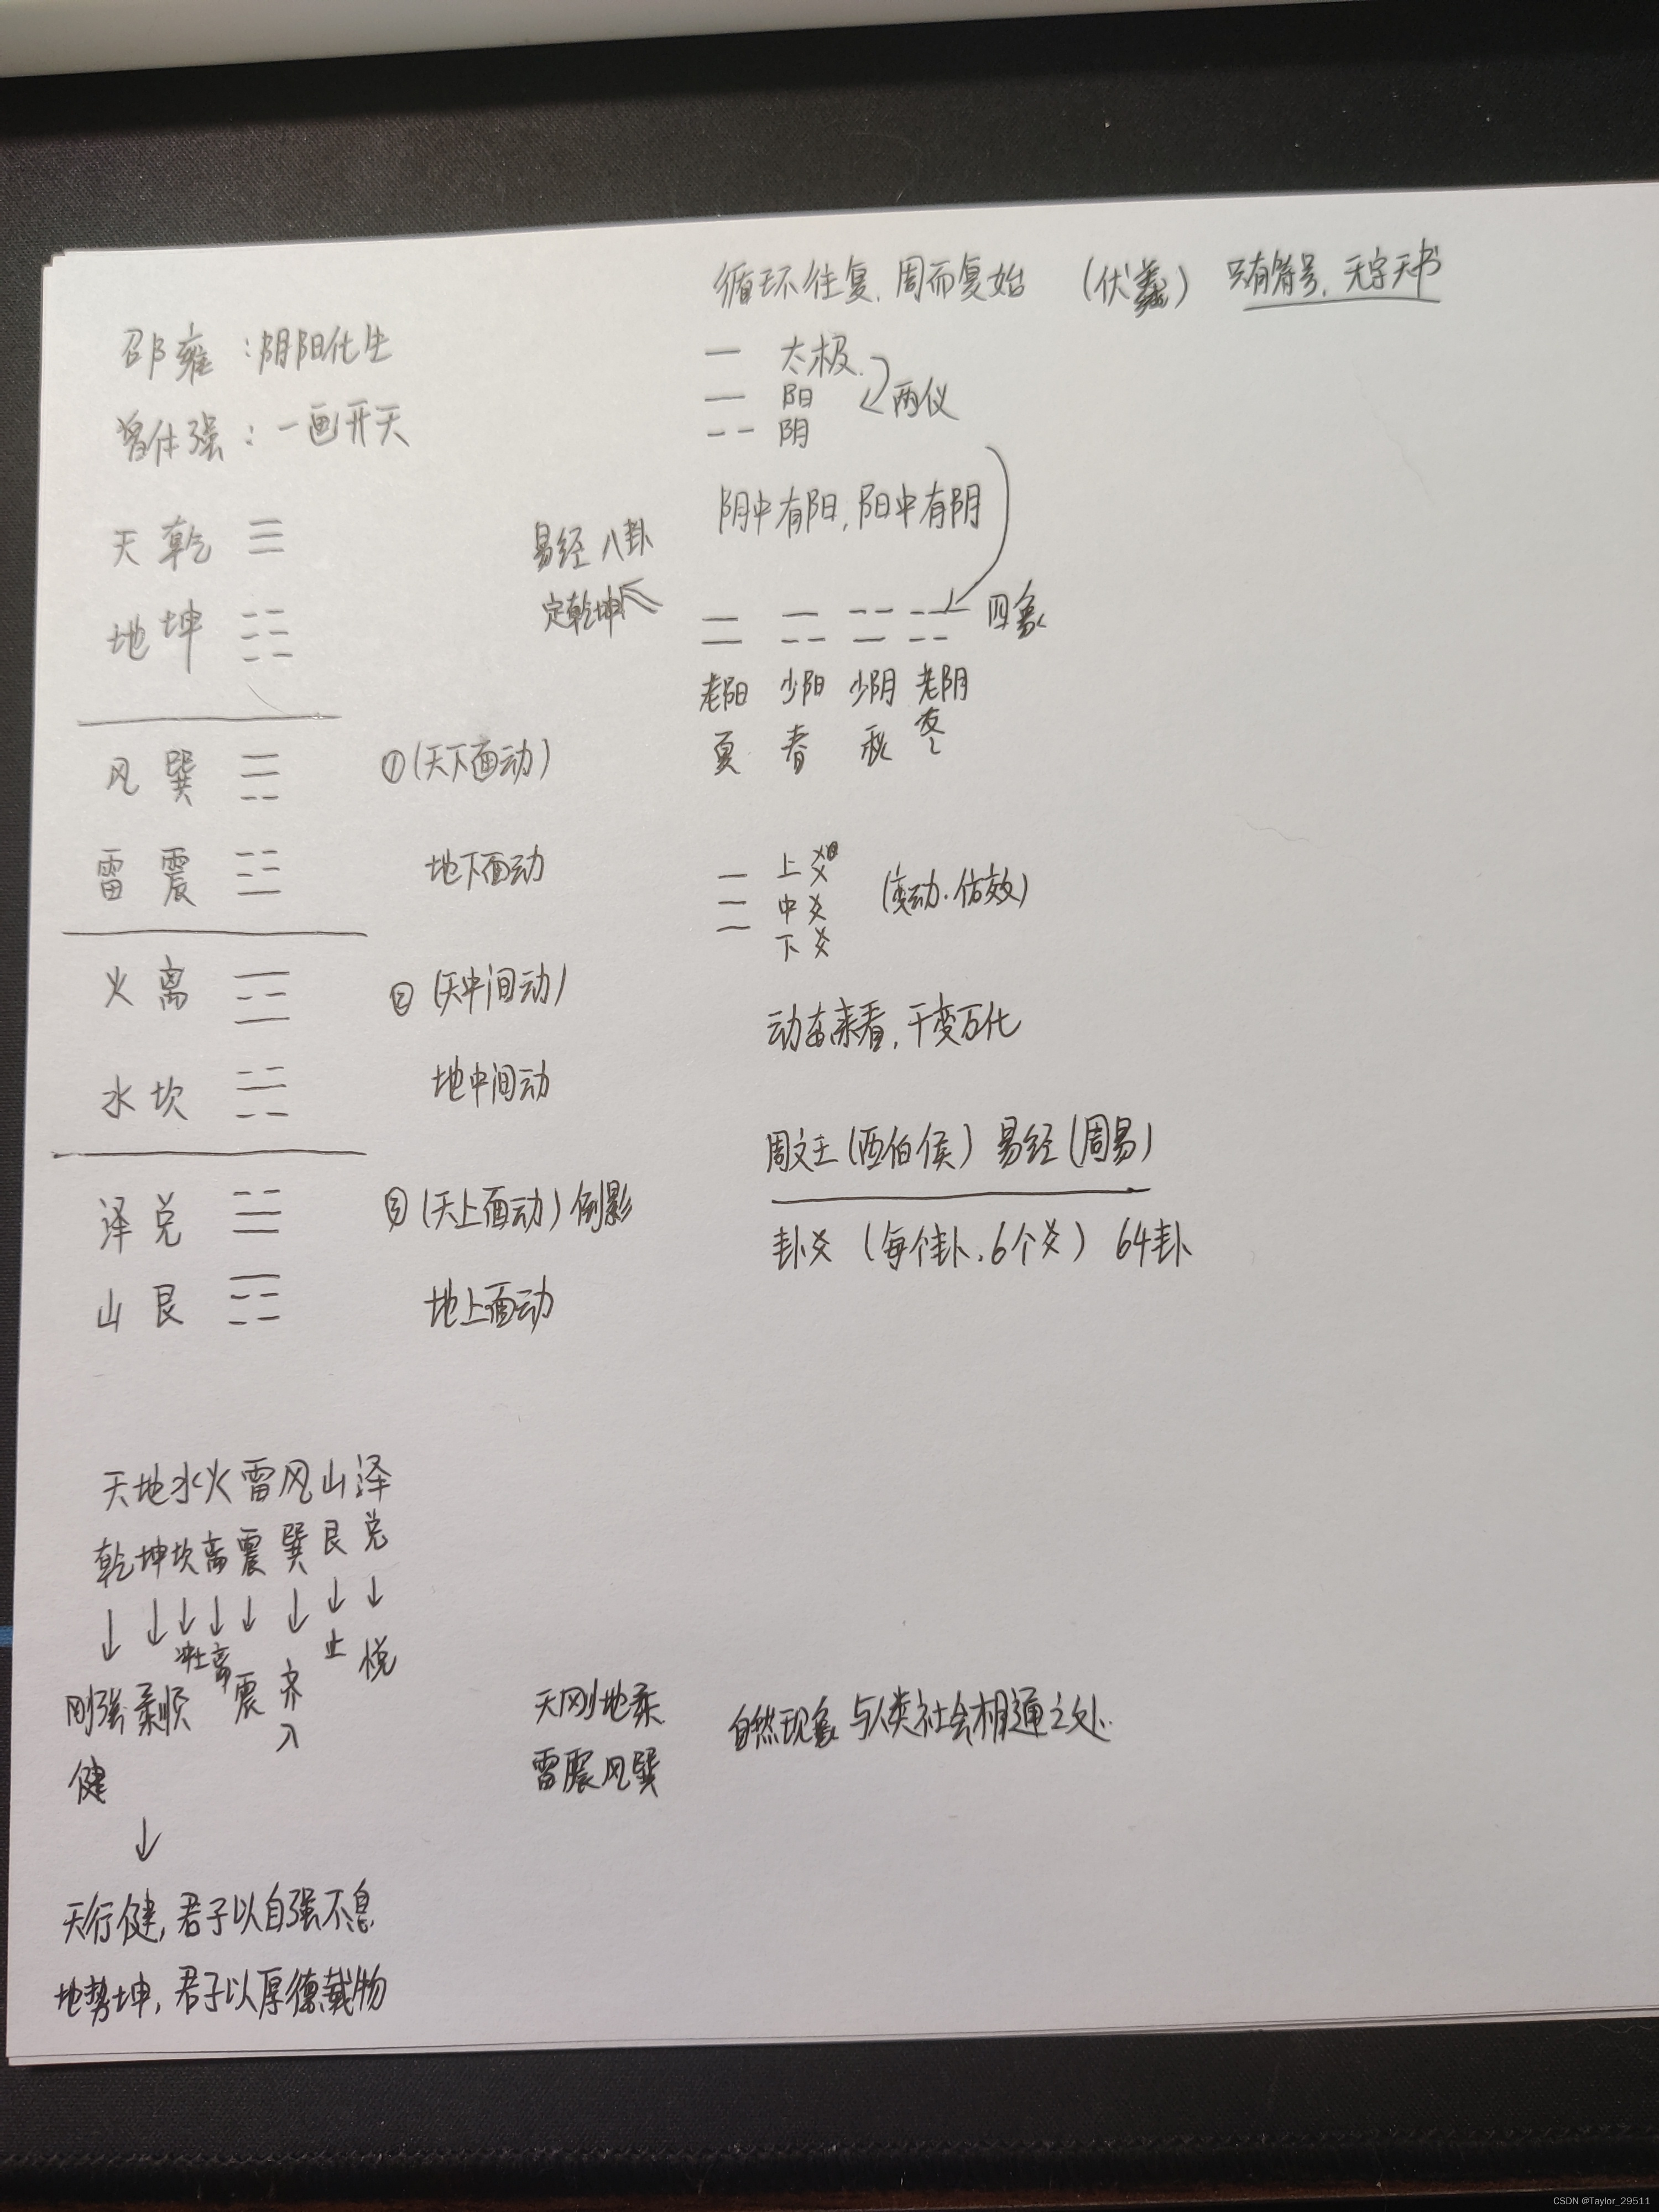 循环往复,周而复始 (伏羲) 只有符号,无字天书
邵雍:阴阳化生
曾仕强:一画开天
太极
阳 两仪
阴
阴中有阳,阳中有阴
天 乾
地 坤
易经八卦
定乾坤
四象
老阳 少阳 少阴 老阴
夏 春 秋 冬
风 巽 ①(天下面动)
雷 震 地下面动
上爻
中爻 (变动.仿效)
下爻
火 离 ②(天中间动)
动态来看,千变万化
水 坎 地中间动
周文王(西伯侯) 易经(周易)
泽 兑 ③(天上面动)倒影
卦爻 (每个卦,6个爻) 64卦
山 艮 地上面动
天地水火雷风山泽
乾坤坎离震巽艮兑
离 止 悦
刚强 柔顺 震 入
健
天刚地柔 自然现象与人类社会相通之处.
雷震风巽
天行健,君子以自强不息
地势坤,君子以厚德载物
CSDN @Taylor_29511